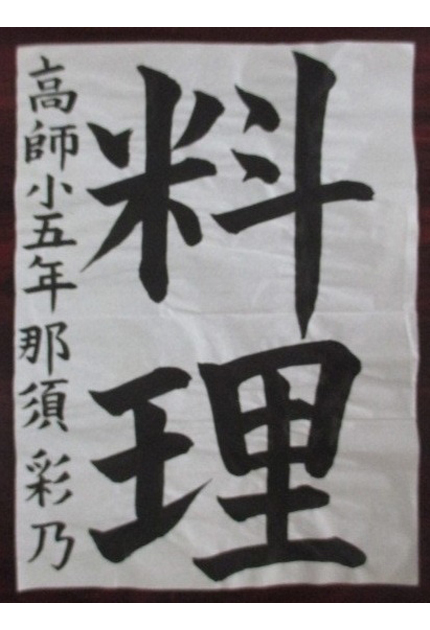 料理
高師小五年 那須 彩乃